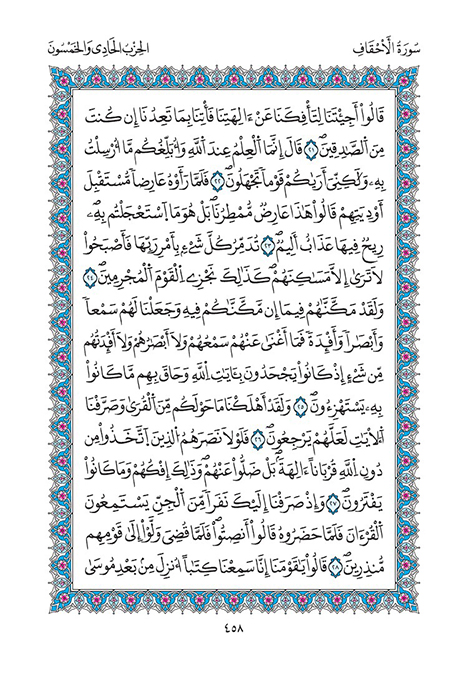 سُورَةُ الْأَحْقَافِ
الحِزْبُ الحَادِي وَالخَمْسُونَ
قَالُوٓاْ أَجِئْتَنَا لِتَأْفِكَنَا عَنْ ءَالِهَتِنَا فَأْتِنَا بِمَا تَعِدُنَآ إِن كُنتَ
مِنَ اَلصَّٰدِقِينَۖ ٢١ قَالَ إِنَّمَا اَلْعِلْمُ عِندَ اَللَّهِ وَأُبَلِّغُكُم مَّآ أُرْسِلْتُ
بِهِۦ وَلَٰكِنِّيَ أَر۪يٰكُمْ قَوْماٗ تَجْهَلُونَۖ ٢٢ فَلَمَّا رَأَوْهُ عَارِضاٗ مُّسْتَقْبِلَ
أَوْدِيَتِهِمْ قَالُواْ هَٰذَا عَارِضٞ مُّمْطِرُنَاۖ بَلْ هُوَ مَا اَسْتَعْجَلْتُم بِهِۦۖ
رِيحٞ فِيهَا عَذَابٌ أَلِيمٞۖ ٢٣ تُدَمِّرُ كُلَّ شَےْءِۢ بِأَمْرِ رَبِّهَا فَأَصْبَحُواْ
لَا تَر۪ىٰٓ إِلَّا مَسَٰكِنَهُمْۖ كَذَٰلِكَ نَجْزِے اِلْقَوْمَ اَلْمُجْرِمِينَۖ ٢٤
وَلَقَدْ مَكَّنَّٰهُمْ فِيمَآ إِن مَّكَّنَّٰكُمْ فِيهِ وَجَعَلْنَا لَهُمْ سَمْعاٗ
وَأَبْصَٰراٗ وَأَفْـِٕدَةٗ فَمَآ أَغْن۪ىٰ عَنْهُمْ سَمْعُهُمْ وَلَآ أَبْصَٰرُهُمْ وَلَآ أَفْـِٕدَتُهُم
مِّن شَےْءٍ إِذْ كَانُواْ يَجْحَدُونَ بِـَٔايَٰتِ اِللَّهِ وَحَاقَ بِهِم مَّا كَانُواْ
بِهِۦ يَسْتَهْزِءُونَۖ ٢٥ وَلَقَدْ أَهْلَكْنَا مَا حَوْلَكُم مِّنَ اَلْقُر۪ىٰ وَصَرَّفْنَا
اَلْأٓيَٰتِ لَعَلَّهُمْ يَرْجِعُونَۖ ٢٦ فَلَوْلَا نَصَرَهُمُ اُلذِينَ اَتَّخَذُواْ مِن
دُونِ اِللَّهِ قُرْبَاناً ءَالِهَةَۢۖ بَلْ ضَلُّواْ عَنْهُمْۖ وَذَٰلِكَ إِفْكُهُمْ وَمَا كَانُواْ
يَفْتَرُونَۖ ٢٧ وَإِذْ صَرَفْنَآ إِلَيْكَ نَفَراٗ مِّنَ اَلْجِنِّ يَسْتَمِعُونَ
اَلْقُرْءَانَ فَلَمَّا حَضَرُوهُ قَالُوٓاْ أَنصِتُواْۖ فَلَمَّا قُضِيَ وَلَّوِاْ اِلَىٰ قَوْمِهِم
مُّنذِرِينَۖ ٢٨ قَالُواْ يَٰقَوْمَنَآ إِنَّا سَمِعْنَا كِتَٰباً اُنزِلَ مِنۢ بَعْدِ مُوس۪ىٰ
٤٥٨